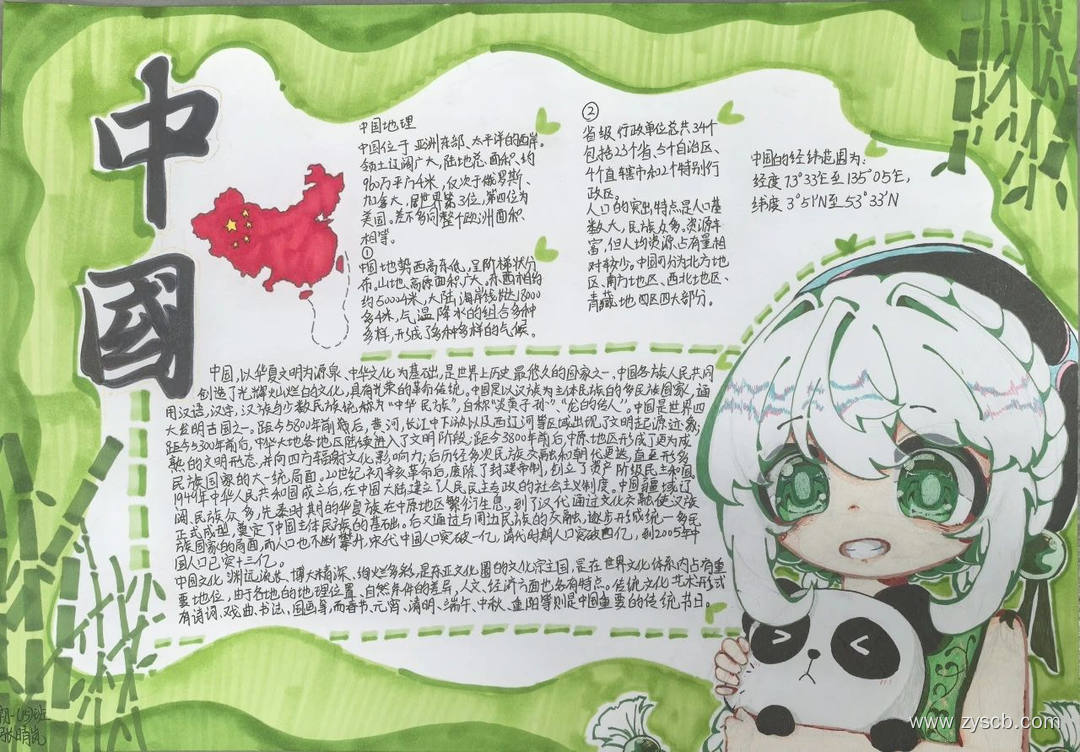 中國
中国地理
中国位于亚洲东部、太平洋的西岸。
领土辽阔广大,陆地总面积约
960万平方千米,仅次于俄罗斯、
加拿大,居世界第3位,第四位为
美国。差不多同整个欧洲面积
相等。
①
中国地势西高东低,呈阶梯状分
布。山地、高原面积广大。东西相约
约5000千米,大陆海岸线长达18000
多千米,气温降水的组合多种
多样,形成了多种多样的气候。
②
省级行政单位总共34个
包括23个省、5个自治区、
4个直辖市和2个特别行
政区。
人口的突出特点是人口基
数大,民族众多。资源丰
富,但人均资源占有量相
对较少。中国可分为北方地
区、南方地区、西北地区、
青藏地四区四大部分。
中国的经纬范围为:
经度73°33′E至135°05′E,
纬度3°51′N至53°33′N
中国,以华夏文明为源泉、中华文化为基础,是世界上历史最悠久的国家之一。中国各族人民共同
创造了光辉灿烂的文化,具有光荣的革命传统。中国是以汉族为主体民族的多民族国家,通
用汉语、汉字,汉族与少数民族统称为“中华民族”,自称“炎黄子孙”、“龙的传人”。中国是世界四
大发明古国之一。距今5800年前晚后,黄河、长江中下游以及西辽河等区域出现了文明起源迹象;
距今5300年前后,中华大地各地区陆续进入了文明阶段;距今3800年前后,中原地区形成了更为成
熟的文明形态,并向四方辐射文化影响力;后历经多次民族交融和朝代更迭,直至形成多
民族国家的大一统局面。20世纪初辛亥革命后,废除了封建帝制,创立了资产阶级民主和国。
1949年中华人民共和国成立后,在中国大陆建立了人民民主专政的社会主义制度。中国疆域辽
阔、民族众多,先秦时期的华夏族在中原地区繁衍生息,到了汉代通过文化交融使汉族
正式成型,奠定了中国主体民族的基础。后又通过与周边民族的交融,逐步形成统一多民
族国家的局面,而人口也不断攀升,宋代中国人口突破一亿,清代时期人口突破四亿,到2005年中
国人口已突十三亿。
中国文化渊远流长、博大精深、绚烂多彩,是东亚文化圈的文化宗主国,是在世界文化体系内占有重
要地位,由于各地的地理位置、自然条件的差异,人文、经济方面也各有特点。传统文化艺术形式
有诗词、戏曲、书法、国画等,而春节、元宵、清明、端午、中秋、重阳等则是中国重要的传统节日。
张晴岚
www.zyscb.com